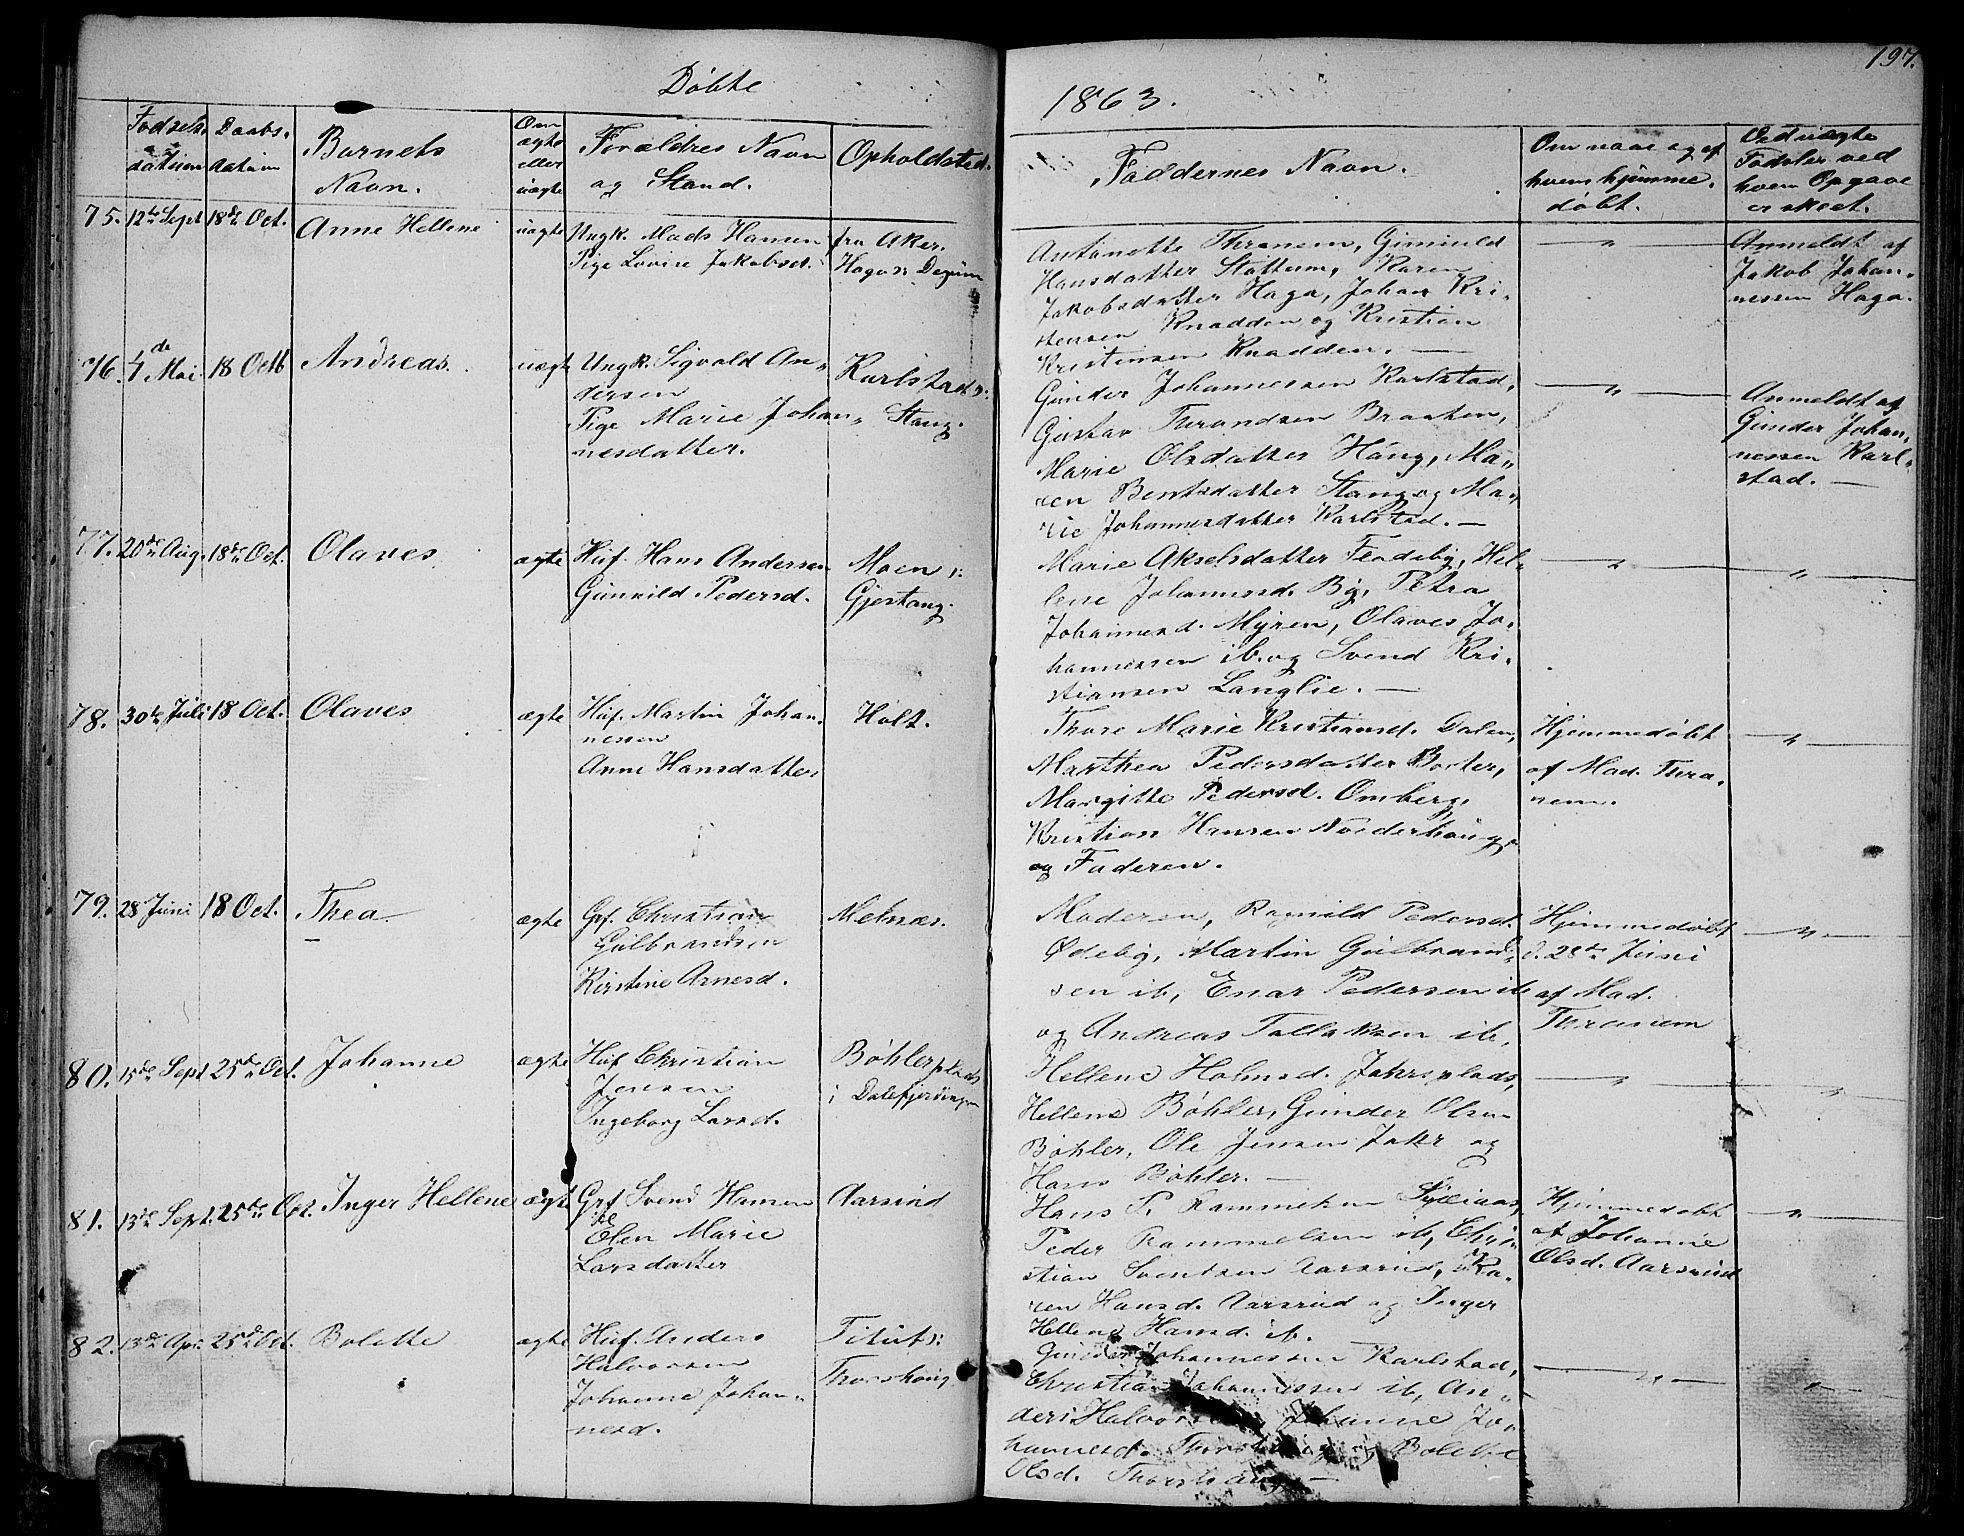 Døbte
1863.
197.
Fødsels-
datum
Daabs-
datum
Barnets
Navn.
Om
ægte
eller
uægte
Forældres Navn
og Stand.
Opholdsted.
Faddernes Navn.
Om naar og af
hvem hjemme-
døbt.
Ved uægte
Fødsler ved
hvem Opgave
er skeet.
75. 12te Sept 18de Oct. Anne Hellene uægte
Ungk. Mads Hansen
Pige Lovise Jakobsd.
fra Aker.
Haga s:
Antonette Thranem, Gunuld
Hansdatter Stottum, Karen
Jakobsdatter Haga, Johan Kri-
stensen Knadden og Kristian
Kristensen Knadden. —
— " —
Anmeldt af
Jakob Johan-
nessen Haga.
76. 4de Mai 18 Octb Andreas. uægte
Ungk. Sigvald An-
dersen
Pige Marie Johan-
nesdatter.
Karlstad s:
Stang.
Gunder Johannessen Karlstad,
Gustav Throndsen Braaten,
Marie Olsdatter Haug, Ma-
ren Bentsdatter Stang og Ma-
rie Johannesdatter Karlstad. —
— " —
Anmeldt af
Gunder Johan-
nessen Karl-
stad. —
77. 20de Aug. 18de Oct. Olaves ægte
Huf. Hans Andersen
Gunnild Pedersd.
Moen s:
Gjestang.
Marie Akselsdatter Fladeby, Hel-
lene Johannesd. By, Petra
Johannesd. Myren, Olaves Jo-
hannessen ib. og Svend Kri-
stiansen Langlie. —
— " —
— " —
78. 30te Juli 18 Oct. Olaves ægte
Huf. Martin Johan-
nessen
Anne Hansdatter
Holt.
Thore Marie Kristiansd. Dalen,
Marthea Pedersdatter Borter,
Margitte Pedersd. Omberg,
Kristian Hansen Norderhaug
og Faderen.
Hjemmedøbt
af Mad. Thra-
nem.
— " —
79. 28 Juni 18 Oct. Thea ægte
Grf. Christian
Gulbrandsen
Kirstine Arnesd.
Melnæs.
Moderen, Ragnild Pedersd.
Ødeby, Martin Gulbrand-
sen ib, Enar Pedersen ib
og Andreas Tollaksen ib,
Hjemmedøbt
d. 28de Juni
af Mad.
Thranem
— " —
80. 15de Sept 25de Oct. Johanne ægte
Huf. Christian
Jensen
Ingeborg Larsd.
Bøhlerplads
i Dalefjerdingen
Hellene Holmsd. Jahrsplads,
Hellene Bøhler, Gunder Olsen
Bøhler, Ole Jensen Jahr og
Hans Bøhler. —
— " —
— " —
81. 13de Sept. 25de Oct. Inger Hellene ægte
Grf. Svend Hansen
Elen Marie
Larsdatter
Aarsrud
Hans P. Rammelsen
Peder Rammelsen ib, Chri-
stian Svendsen Aarsrud, Ka-
ren Hansd. Aarsrud og Inger
Hellene Hansd. ib.
Hjemmedøbt
af Johanne
Olsd. Aarsrud
— " —
82. 13de Apr. 25de Oct. Bolette ægte
Huf. Anders
Halvorsen
Johanne Johan-
nesd.
Titut s:
Thorshaug
Gunder Johannessen Karlstad,
Christian Johannessen ib, An-
ders Halvorsen, Johanne Jo-
hannesd. Thorshaug og Bolette
Olsd. Thorshaug. —
— " —
— " —